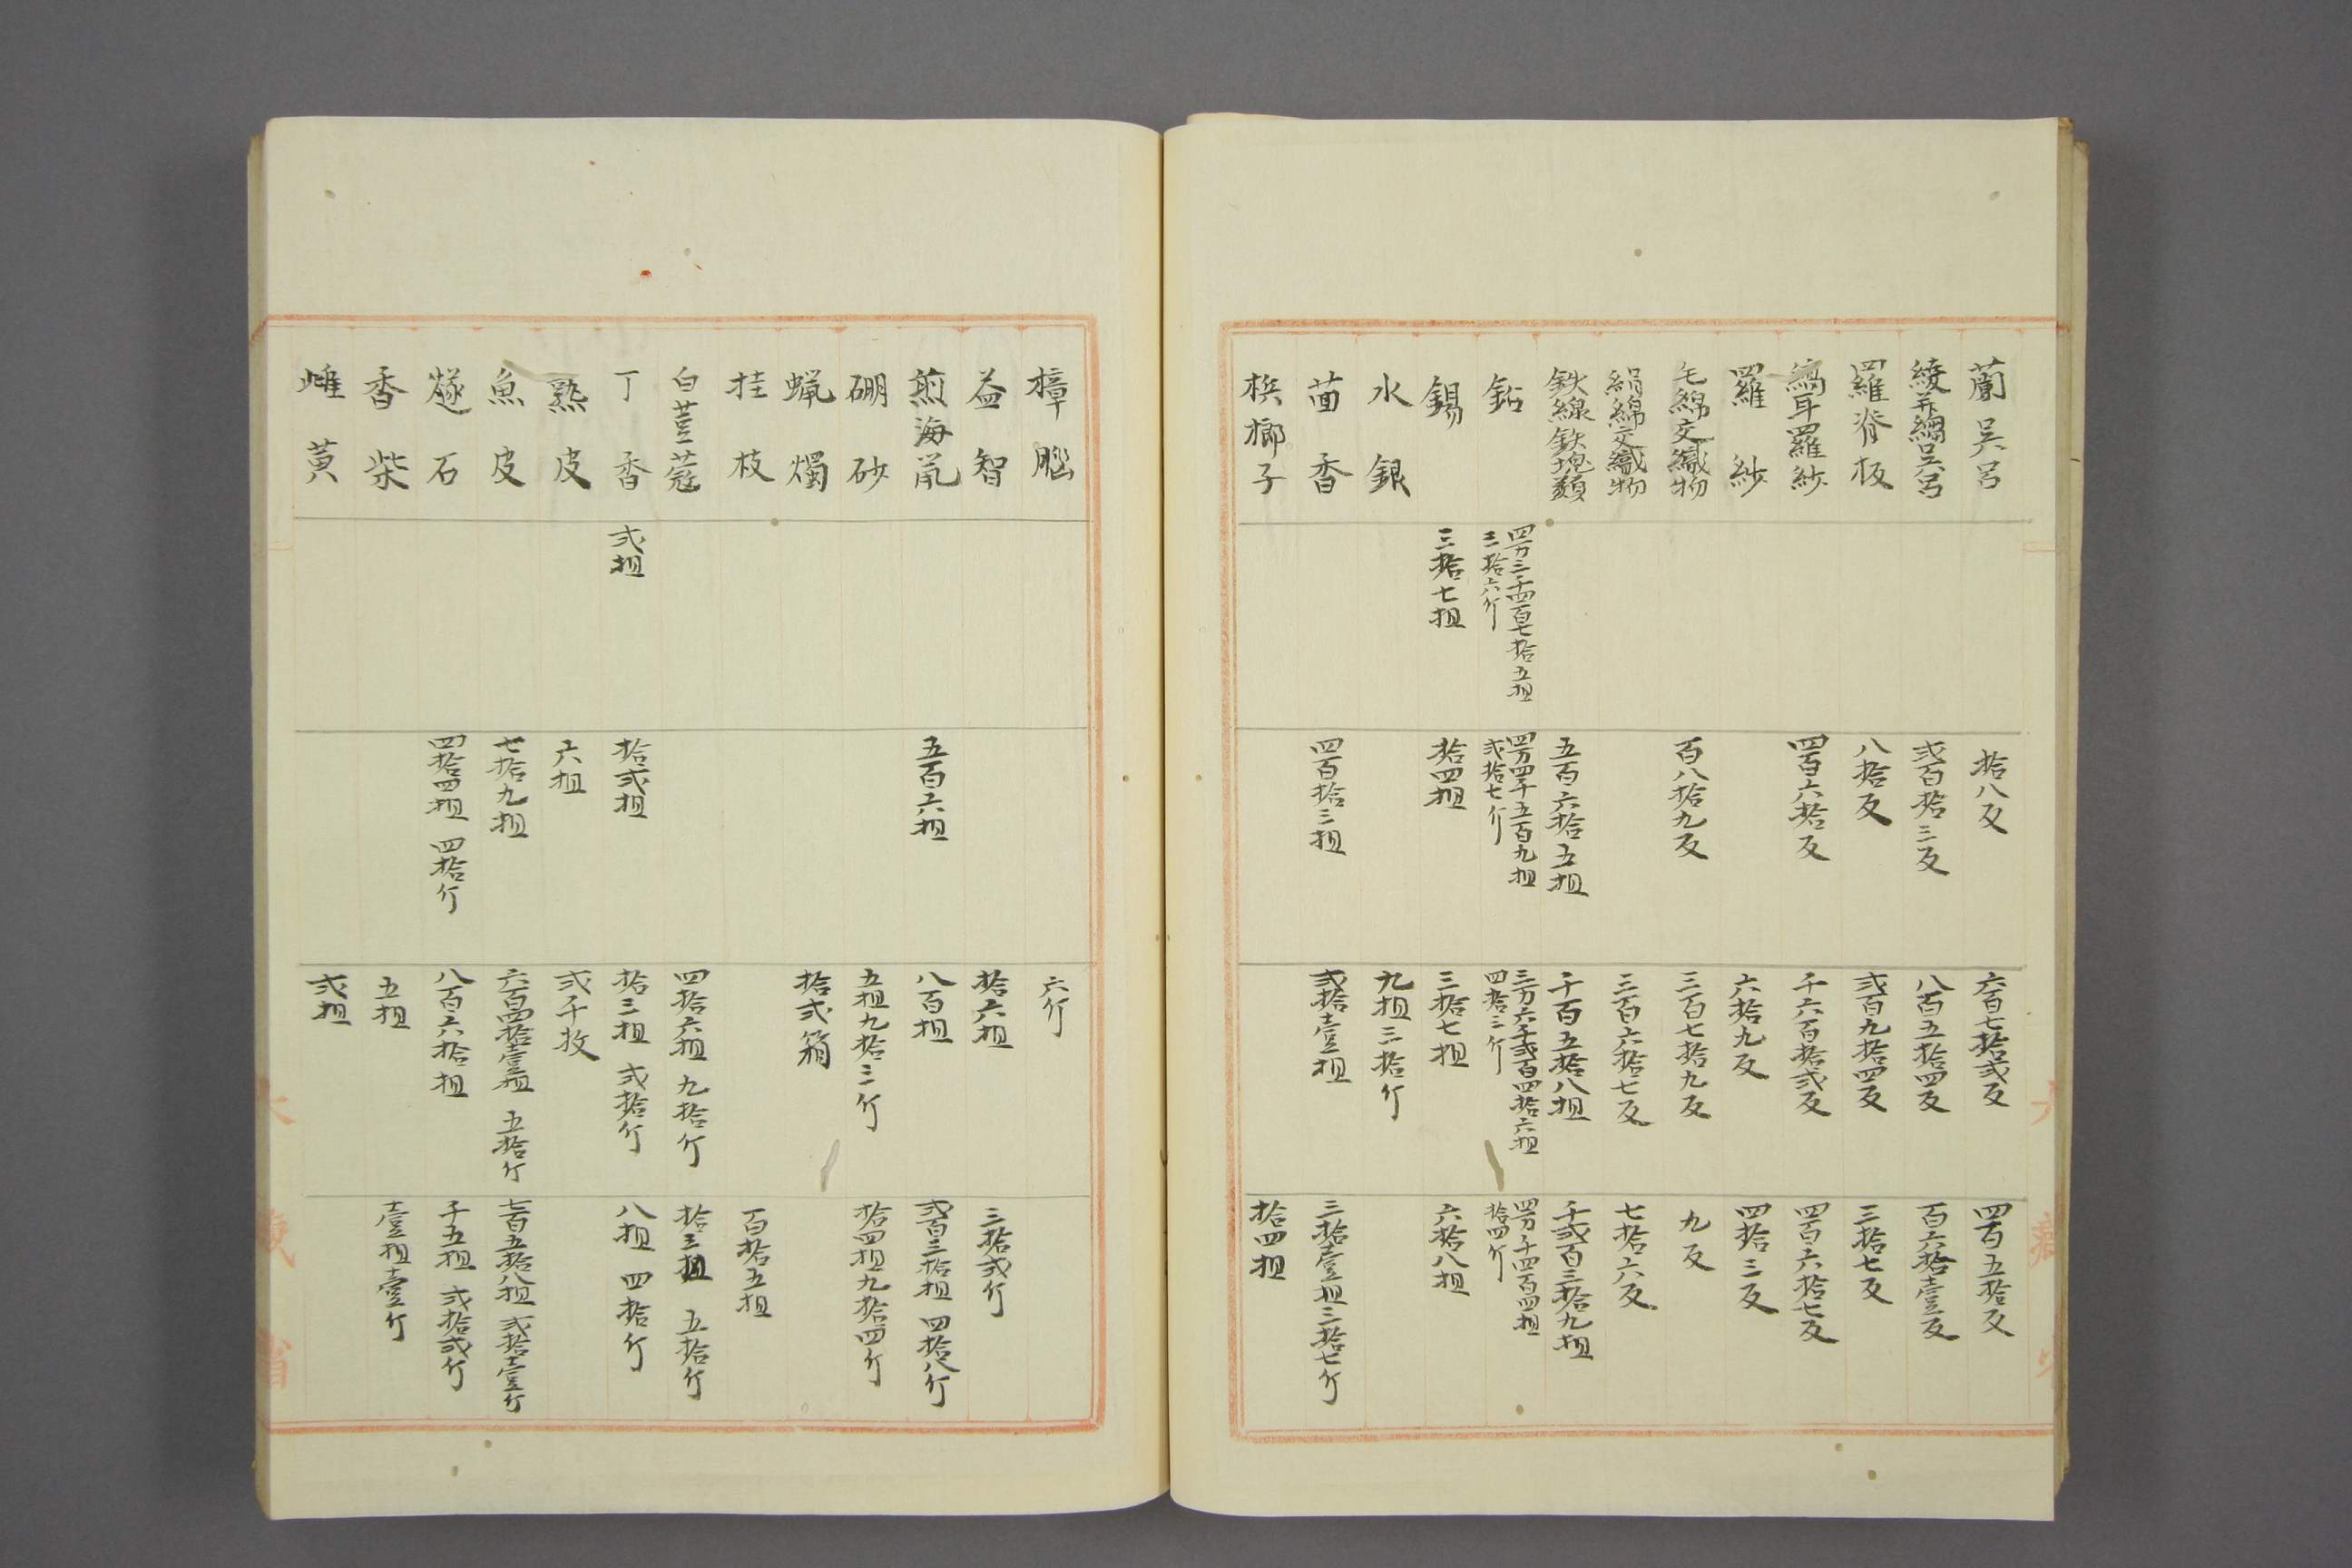 蘭呉呂 拾八反 六百七拾弐反 四百五拾反
綾并縐呉呂 弐百拾三反 八百五拾四反 百六拾壹反
羅脊板 八拾反 弐百九拾四反 三拾七反
縞耳羅紗 四百六拾反 千六百拾弐反 四百六拾七反
羅紗 六拾九反 四拾三反
毛綿交織物 百八拾九反 三百七拾九反 九反
絹綿交織物 三百六拾七反 七拾六反
鉄線鉄塊類 五百六拾五担 千百五拾八担 千弐百三拾九担
鉛 四万三千四百七拾五担三拾六斤 四万四千五百九担弐拾七斤 三万六千弐百四拾六担四拾三斤 四万千四百四担拾四斤
錫 三拾七担 拾四担 三拾七担 六拾八担
水銀 九担三拾斤
茴香 四百拾三担 弐拾壹担 三拾壹担三拾七斤
梹榔子 拾四担
樟脳 六斤
益智 拾六担 三拾弐斤
煎海鼠 五百六担 八百担 弐百三拾担 四拾八斤
硼砂 五担九拾三斤 拾四担九拾四斤
蝋燭 拾弐箱
桂枝 百拾五担
白荳蔲 四拾六担 九拾斤 拾三担 五拾斤
丁香 弐担 拾弐担 拾三担 弐拾斤 八担 四拾斤
熟皮 六担 弐千枚
魚皮 七拾九担 六百四拾壹担 五拾斤 七百五拾八担 弐拾壹斤
燧石 四拾四担 四拾斤 八百六拾担 千五担 弐拾弐斤
香柴 五担 壹担壹斤
雌黄 弐担
大藏省